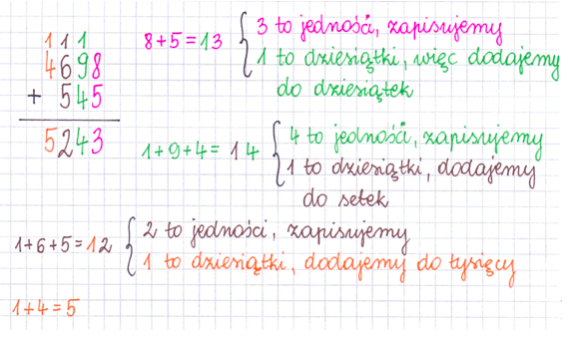 1 1 1
4698
+ 545
5243
8+5=13 { 3 to jedności, zapisujemy
1 to dziesiątki, więc dodajemy
do dziesiątek
1+9+4= 14 { 4 to jedności, zapisujemy
1 to dziesiątki, dodajemy
do setek
1+6+5=12 { 2 to jedności, zapisujemy
1 to dziesiątki, dodajemy do tysięcy
1+4=5